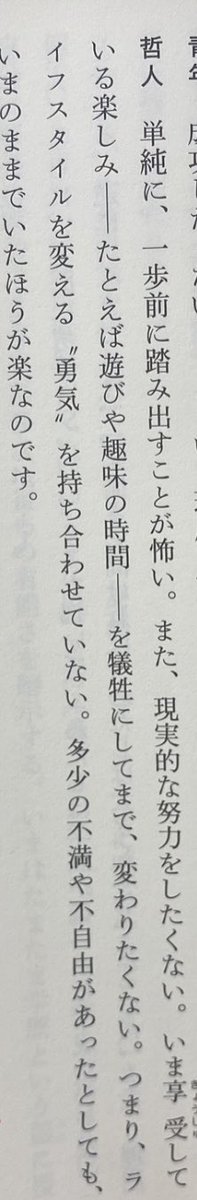 哲人　単純に、一歩前に踏み出すことが怖い。また、現実的な努力をしたくない。いま享受して
いる楽しみ――たとえば遊びや趣味の時間――を犠牲にしてまで、変わりたくない。つまり、ラ
イフスタイルを変える〝勇気〟を持ち合わせていない。多少の不満や不自由があったとしても、
いまのままでいたほうが楽なのです。